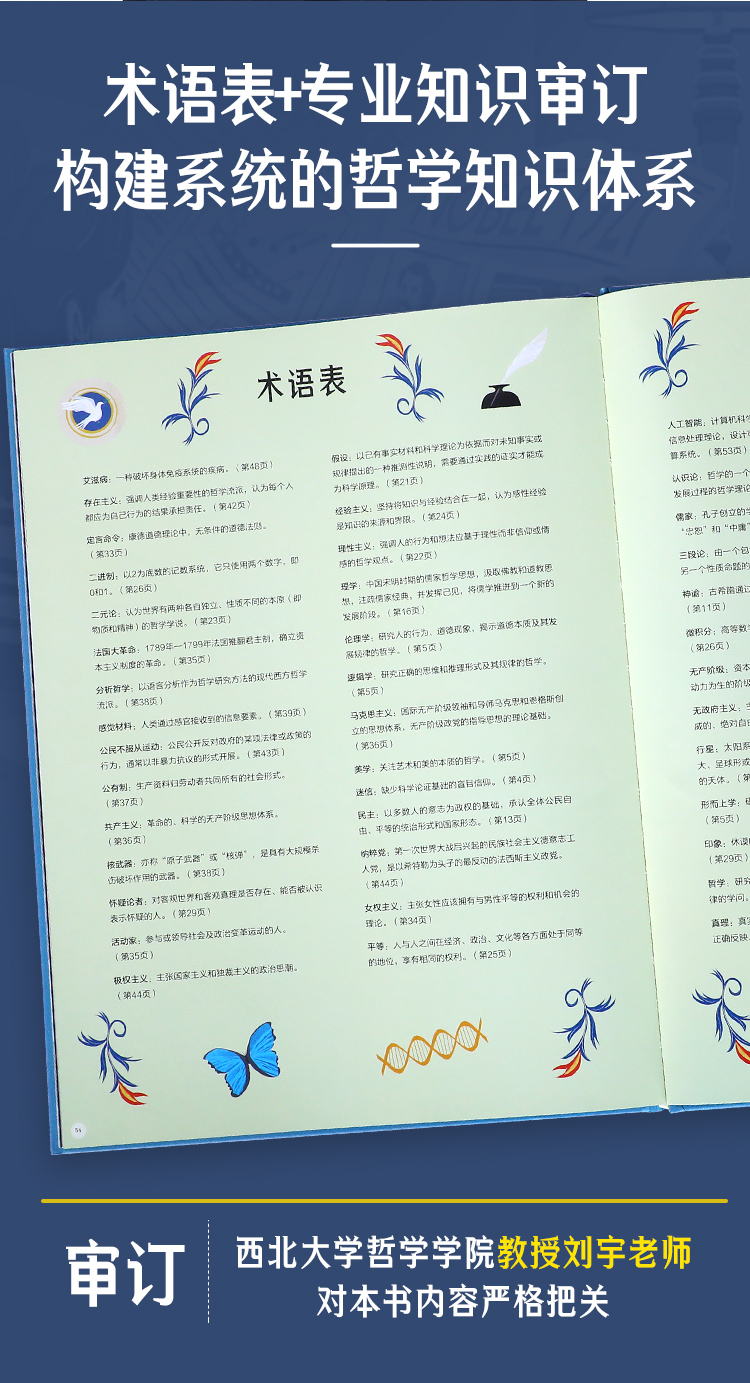 术语表+专业知识审订
构建系统的哲学知识体系
术语表
艾滋病：一种破坏身体免疫系统的疾病。（第48页）
存在主义：强调人类经验重要性的哲学流派，认为每个人
都应为自己行为的结果承担责任。（第42页）
定言命令：康德道德理论中，无条件的道德法则。
（第33页）
二进制：以2为底数的记数系统，它只使用两个数字，即
0和1。（第26页）
二元论：认为世界有两种各自独立、性质不同的本原（即
物质和精神）的哲学学说。（第23页）
法国大革命：1789年—1799年法国推翻君主制，确立资
本主义制度的革命。（第35页）
分析哲学：以语言分析作为哲学研究方法的现代西方哲学
流派。（第38页）
感觉材料：人类通过感官接收到的信息要素。（第39页）
公民不服从运动：公民公开反对政府的某项法律或政策的
行为，通常以非暴力抗议的形式开展。（第43页）
公有制：生产资料归劳动者共同所有的社会形式。
（第37页）
共产主义：革命的、科学的无产阶级思想体系。
（第36页）
核武器：亦称“原子武器”或“核弹”，是具有大规模杀
伤破坏作用的武器。（第38页）
怀疑论者：对客观世界和客观真理是否存在、能否被认识
表示怀疑的人。（第29页）
活动家：参与或领导社会及政治变革运动的人。
（第35页）
极权主义：主张国家主义和独裁主义的政治思潮。
（第44页）
假设：以已有事实材料和科学理论为依据而对未知事实或
规律提出的一种推测性说明，需要通过实践的证实才能成
为科学原理。（第21页）
经验主义：坚持将知识与经验结合在一起，认为感性经验
是知识的来源和界限。（第24页）
理性主义：强调人的行为和想法应基于理性而非信仰或情
感的哲学观点。（第22页）
理学：中国宋明时期的儒家哲学思想，汲取佛教和道教思
想，注疏儒家经典，并发挥己见，将儒学推进到一个新的
发展阶段。（第16页）
伦理学：研究人的行为、道德现象，揭示道德本质及其发
展规律的哲学。（第5页）
逻辑学：研究正确的思维和推理形式及其规律的哲学。
（第5页）
马克思主义：国际无产阶级领袖和导师马克思和恩格斯创
立的思想体系，无产阶级政党的指导思想的理论基础。
（第36页）
美学：关注艺术和美的本质的哲学。（第5页）
迷信：缺少科学论证基础的盲目信仰。（第4页）
民主：以多数人的意志为政权的基础、承认全体公民自
由、平等的统治形式和国家形态。（第13页）
纳粹党：第一次世界大战后兴起的民族社会主义德意志工
人党，是以希特勒为头子的最反动的法西斯主义政党。
（第44页）
女权主义：主张女性应该拥有与男性平等的权利和机会的
理论。（第34页）
平等：人与人之间在经济、政治、文化等各方面处于同等
的地位，享有相同的权利。（第25页）
54
人工智能：计算机科学
信息处理理论，设计
算系统。（第53页）
认识论：哲学的一个
发展过程的哲学理论
儒家：孔子创立的学
“忠恕”和“中庸”
三段论：由一个包
另一个性质命题的
神谕：古希腊通过
（第11页）
微积分：高等数学
（第26页）
无产阶级：资本
动力为生的阶级
无政府主义：主
威的、绝对自由
行星：太阳系
大、足球形或
的天体。（第
形而上学：研
（第5页）
印象：休谟
（第29页）
哲学：研究
律的学问。
真理：真实
正确反映。
审订
西北大学哲学学院教授刘宇老师
对本书内容严格把关